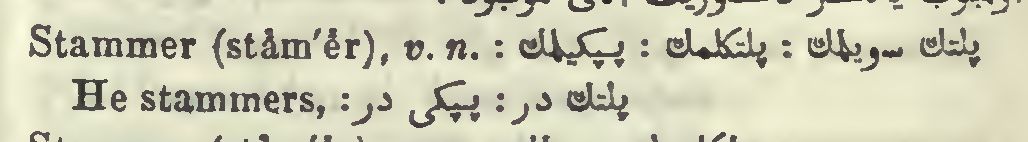 Stammer (stăm′ĕr), v. n. : پلتك سويلمك : پلتكلمك : پپكيلمك
He stammers, : پلتك در : پپكى در